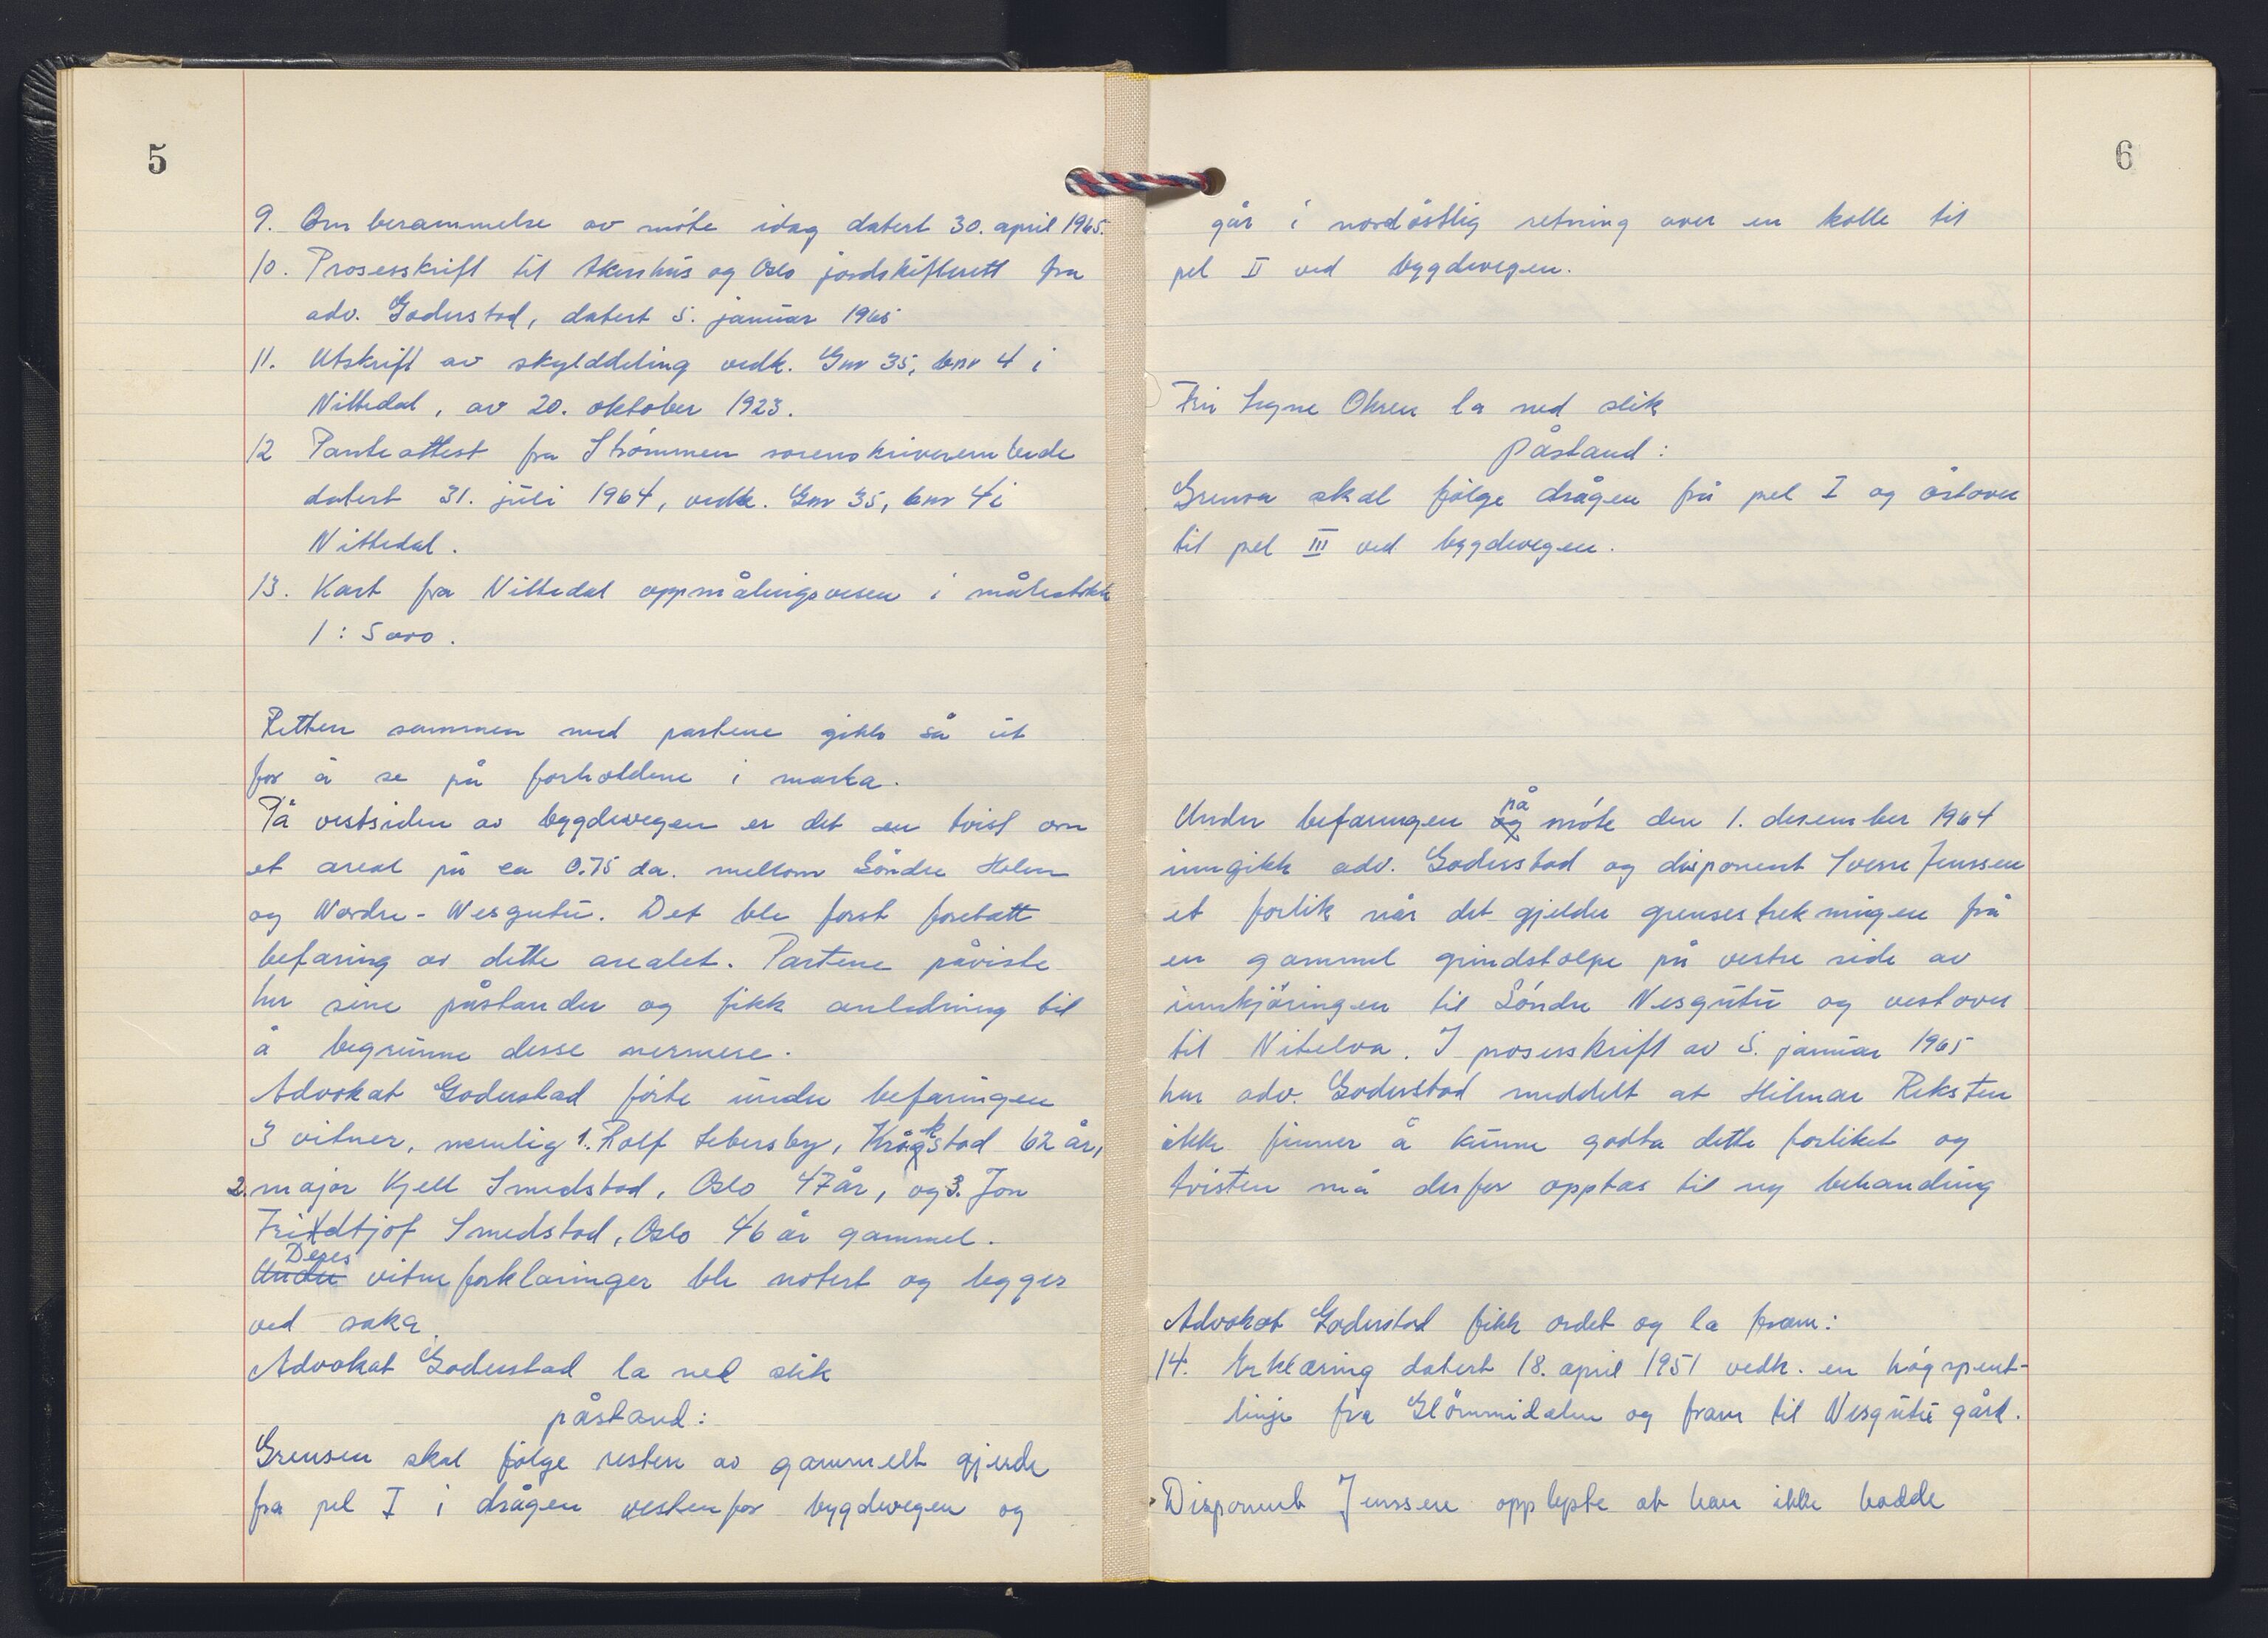 5
9. Om berammelse av möte idag datert 30. april 1965.
10. Prosesskrift til Akershus og Oslo jordskifterett fra
adv. Goderstad, datert 5. januar 1965
11. Utskrift av skylddeling vedk. Gnr 35, bnr 4 i
Nittedal, av 20. oktober 1923.
12 Panteattest fra Strömmen sorenskriverembede
datert 31. juli 1964, vedk. Gnr 35, bnr 4 i
Nittedal.
13. Kart fra Nittedal oppmålingsvesen i målestokk
1:5000.
Retten sammen med partene gikk så ut
for å se på forholdene i marka.
På vestsiden av bygdevegen er det en tvist om
et areal på ca 0.75 da. mellom Söndre Holm
og Nordre-Nesgutu. Det ble først foretatt
befaring av dette arealet. Partene påviste
her sine påstander og fikk anledning til
å begrunne desse nermere.
Advokat Goderstad förte under befaringen
3 vitner, nemlig 1. Rolf Sebersby, Kråkstad 62 år,
2. major Kjell Smedstad, Oslo 47 år, og 3. Jon
Fridtjof Smedstad, Oslo 46 år gammel.
Deres
Under vitneforklaringer ble notert og legges
ved saka.
Advokat Goderstad la ned slik
påstand:
Grensen skal fölge resten av gammelt gjerde
fra pel I i drågen vestenfor bygdevegen og
6
går i nordöstlig retning over en kolle til
pel II ved bygdevegen.
Fru Signe Olsen la ned slik
Påstand:
Grensa skal fölge drågen frå pel I og östover
til pel III ved bygdevegen.
på
Under befaringen og möte den 1. desember 1964
inngikk adv. Goderstad og disponent Sverre Jenssen
et forlik når det gjelder grensestrekningen frå
en gammel grindstolpe på vestre side av
innkjöringen til Söndre Nesgutu og vestover
til Nitelva. I prosesskrift av 5. januar 1965
har adv. Goderstad meddelt at Hilmar Reksten
ikke finner å kunne godta dette forliket og
tvisten må derfor opptas til ny behandling
Advokat Goderstad fikk ordet og la fram:
14. Erklæring datert 18. april 1951 vedk. en högspent-
linje fra Glömmidalen og fram til Nesgutu gård.
Disponent Jenssen opplyste at han ikke hadde